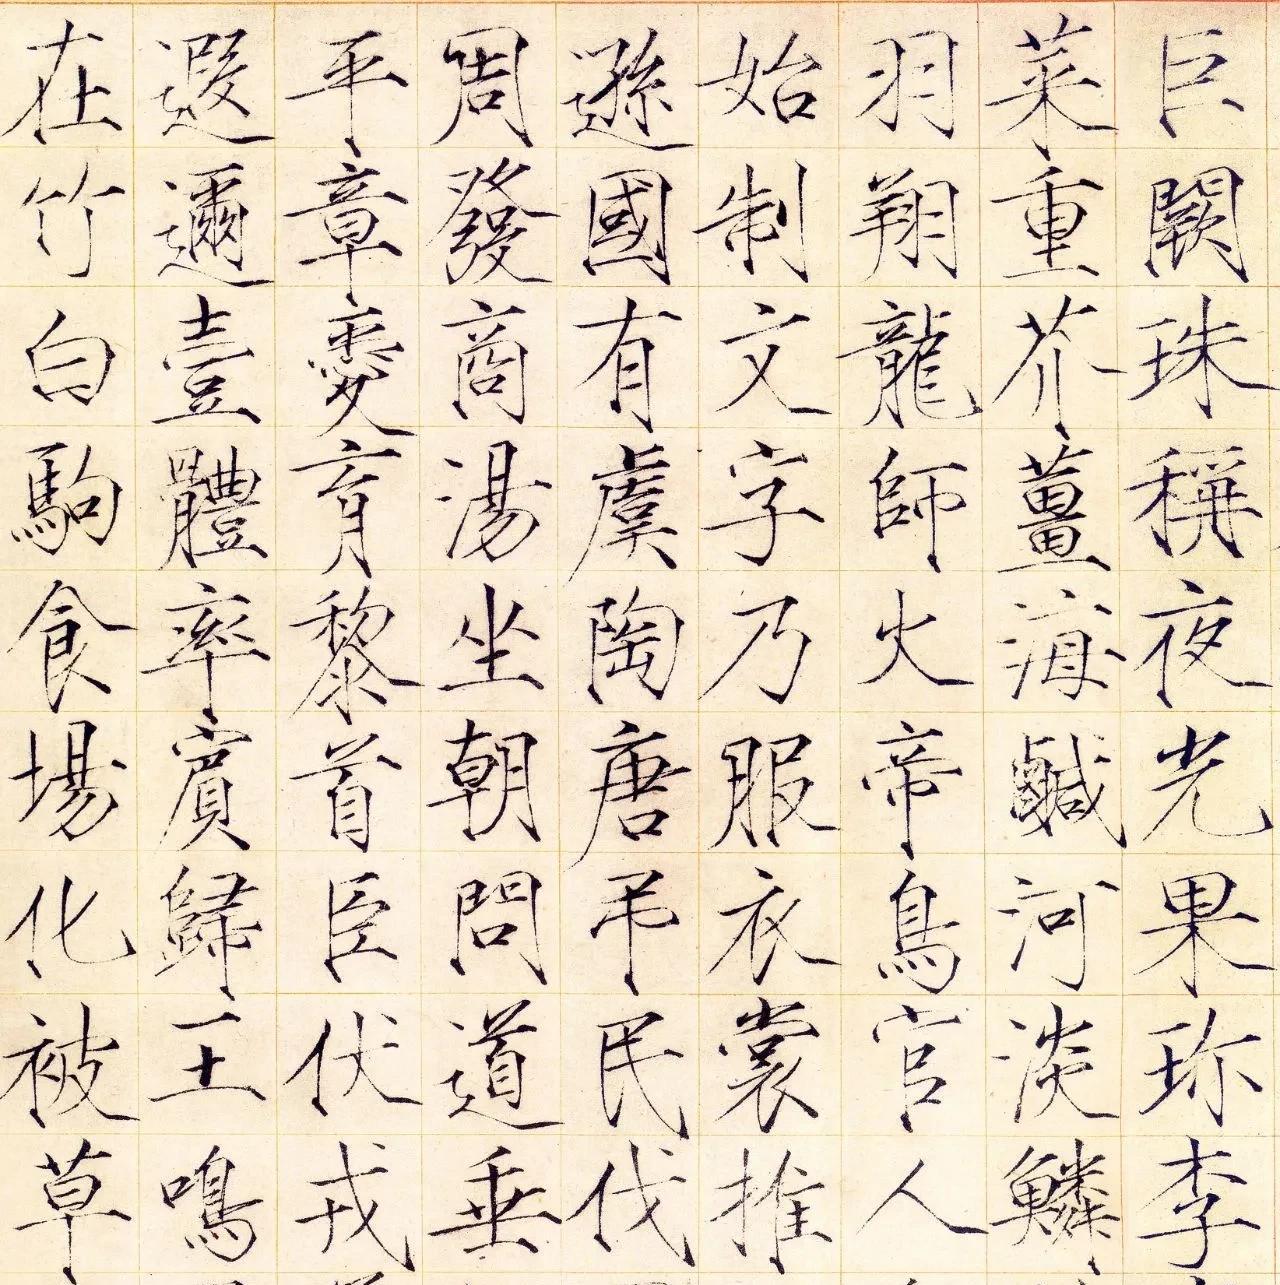 巨闕珠稱夜光果珎李
菜重芥薑海鹹河淡鱗
羽翔龍師火帝鳥官人
始制文字乃服衣裳推
遜國有虞陶唐弔民伐
周發商湯坐朝問道垂
平章愛育黎首臣伏戎
遐邇壹體率賓歸王鳴
在竹白駒食場化被草